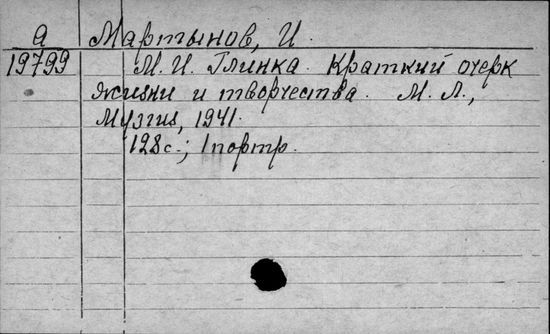 а Мартынов, И.
19799 М. И. Глинка. Краткий очерк
жизни и творчества. М. Л.,
Музгиз, 1941.
128с.; 1 портр.